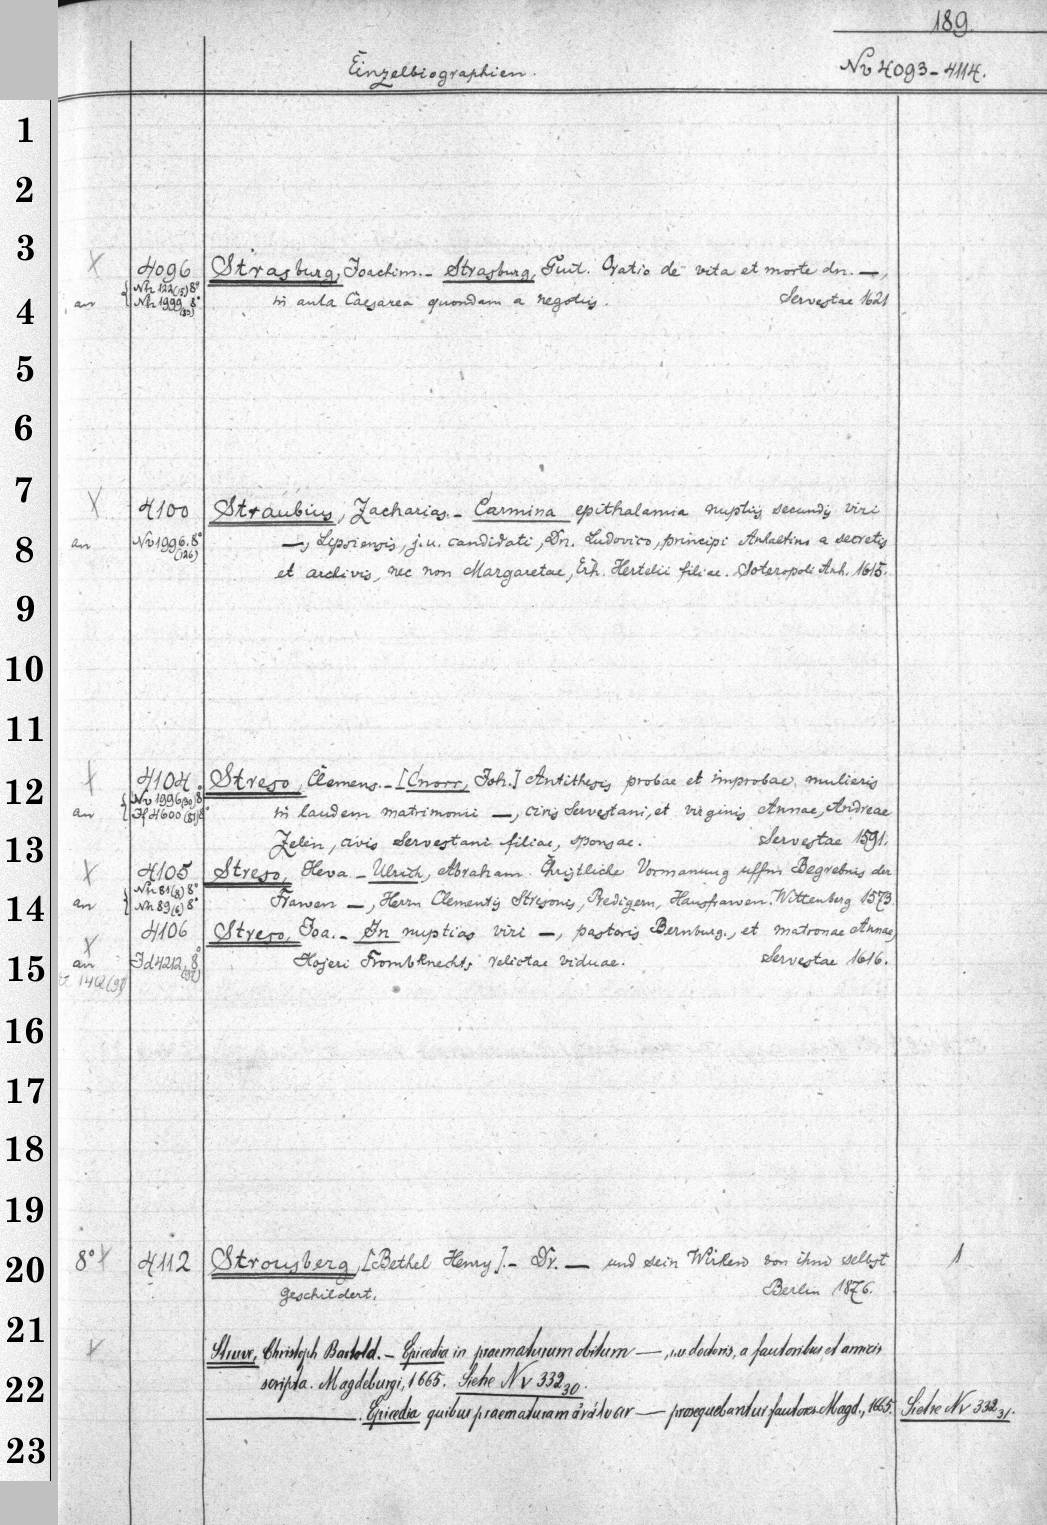 189.
Einzelbiographien.
Nv 4093-4114.
1
2
3
X 4096 Strasburg, Joachim.- Strasburg, Guil. Oratio de vita et morte dn. —,
an Nh 122(5) 8° Nh 1999 8° (30) in aula Caesarea quondam a negotiis. Servestae 1621
4
5
6
7
X 4100 Straubius, Zacharias.- Carmina epithalamia nuptiis secundis viri
8
an Nv 1996.8° (126) —, Lipsiensis, j.u. candidati, Dn. Ludovico, principi Anhaltino a secretis
et archivis, nec non Margaretae, Erh. Hertelii filiae. Soteropoli Anh. 1615.
9
10
11
12
X 4104 Streso, Clemens.- [Cnorr, Joh.] Antithesis probae et improbae mulieris
an Nv 1996(30) 8° in laudem matrimonii —, civis Servestani, et virginis Annae, Andreae
13
Zelin, civis Servestani filiae, sponsae. Servestae 1591.
X 4105 Streso, Heva.- Ulrich, Abraham. Christliche Vormanung uffm Begrebnis der
14
an Nh 81(8) 8° Nh 89(6) 8° Frawen —, Herrn Clementis Stresonis, Predigern, Hausfrawen. Wittenberg 1573.
X 4106 Streso, Joa.- In nuptias viri —, pastoris Bernburg., et matronae Annae,
15
an Hojeri Frombknechts relictae viduae. Servestae 1616.
16
17
18
19
20
8° X 4112 Strousberg, [Bethel Henry].- Dr. — und sein Wirken von ihm selbst 1
geschildert. Berlin 1876.
21
Struve, Christoph Bartold.- Epicedia in praematurum obitum —, i.u. doctoris, a fautoribus et amicis
22
scripta. Magdeburgi, 1665. Siehe Nv 332 30.
—. Epicedia quibus praematuram — prosequebantur fautores. Magd., 1665. Siehe Nv 332 31.
23